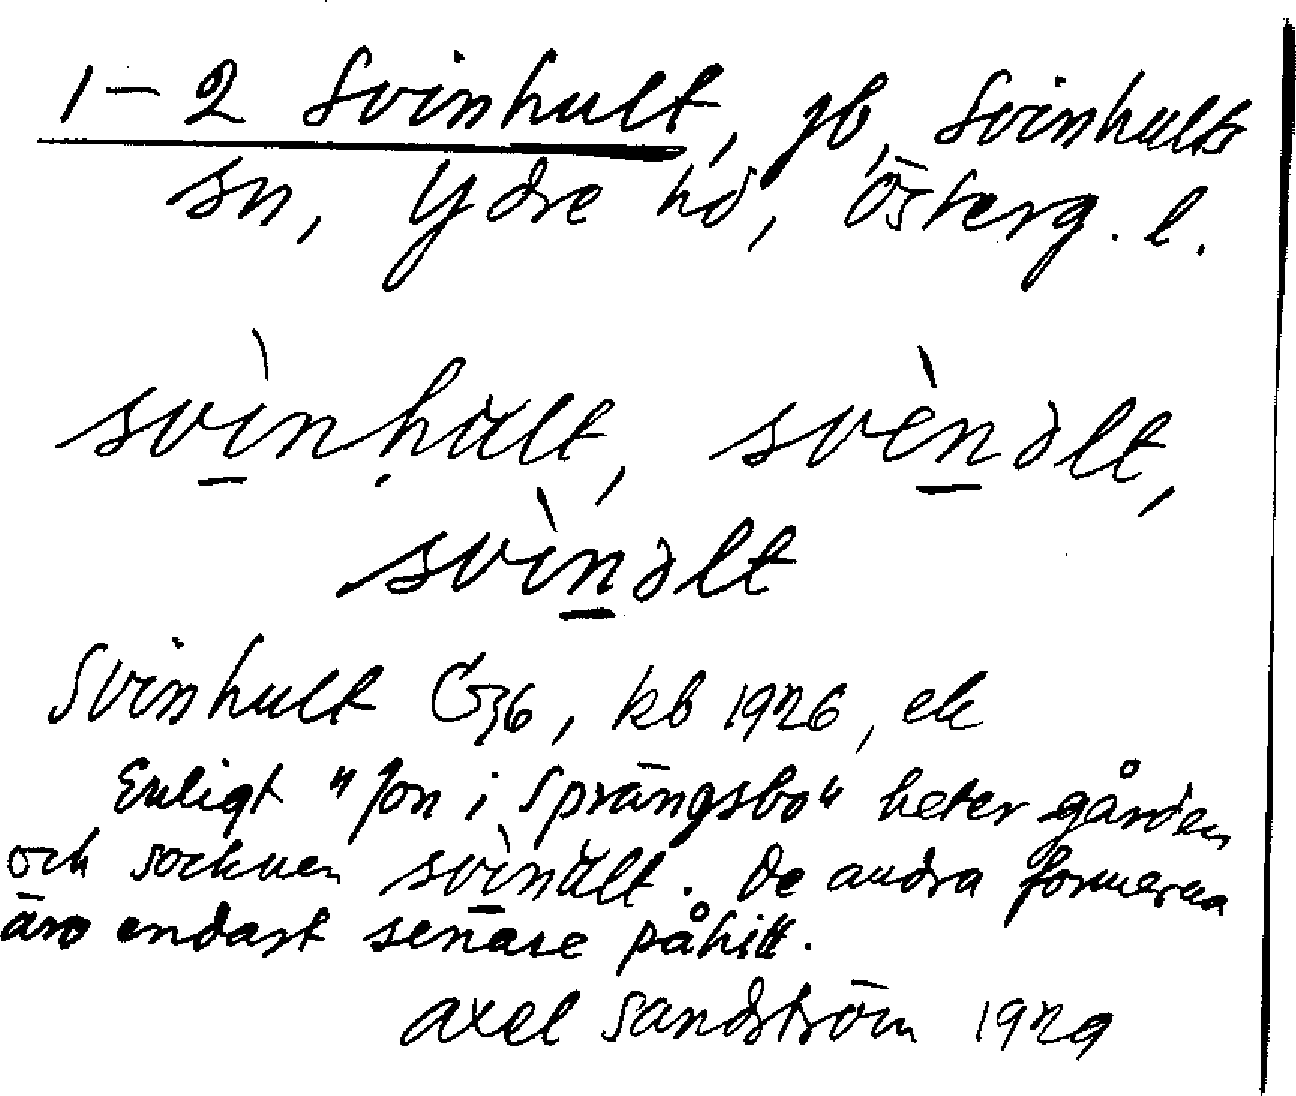 1–2 Svinhult, gb, Svinhults
sn, Ydre hd, Österg. l.
svìnhult, svènəlt,
svìnəlt
Svinhult G36, kb 1926, ek
Enligt "Jon i Sprängsbo" heter gården
och socknen svìnult. De andra formerna
äro endast senare påhitt.
Axel Sandström 1929